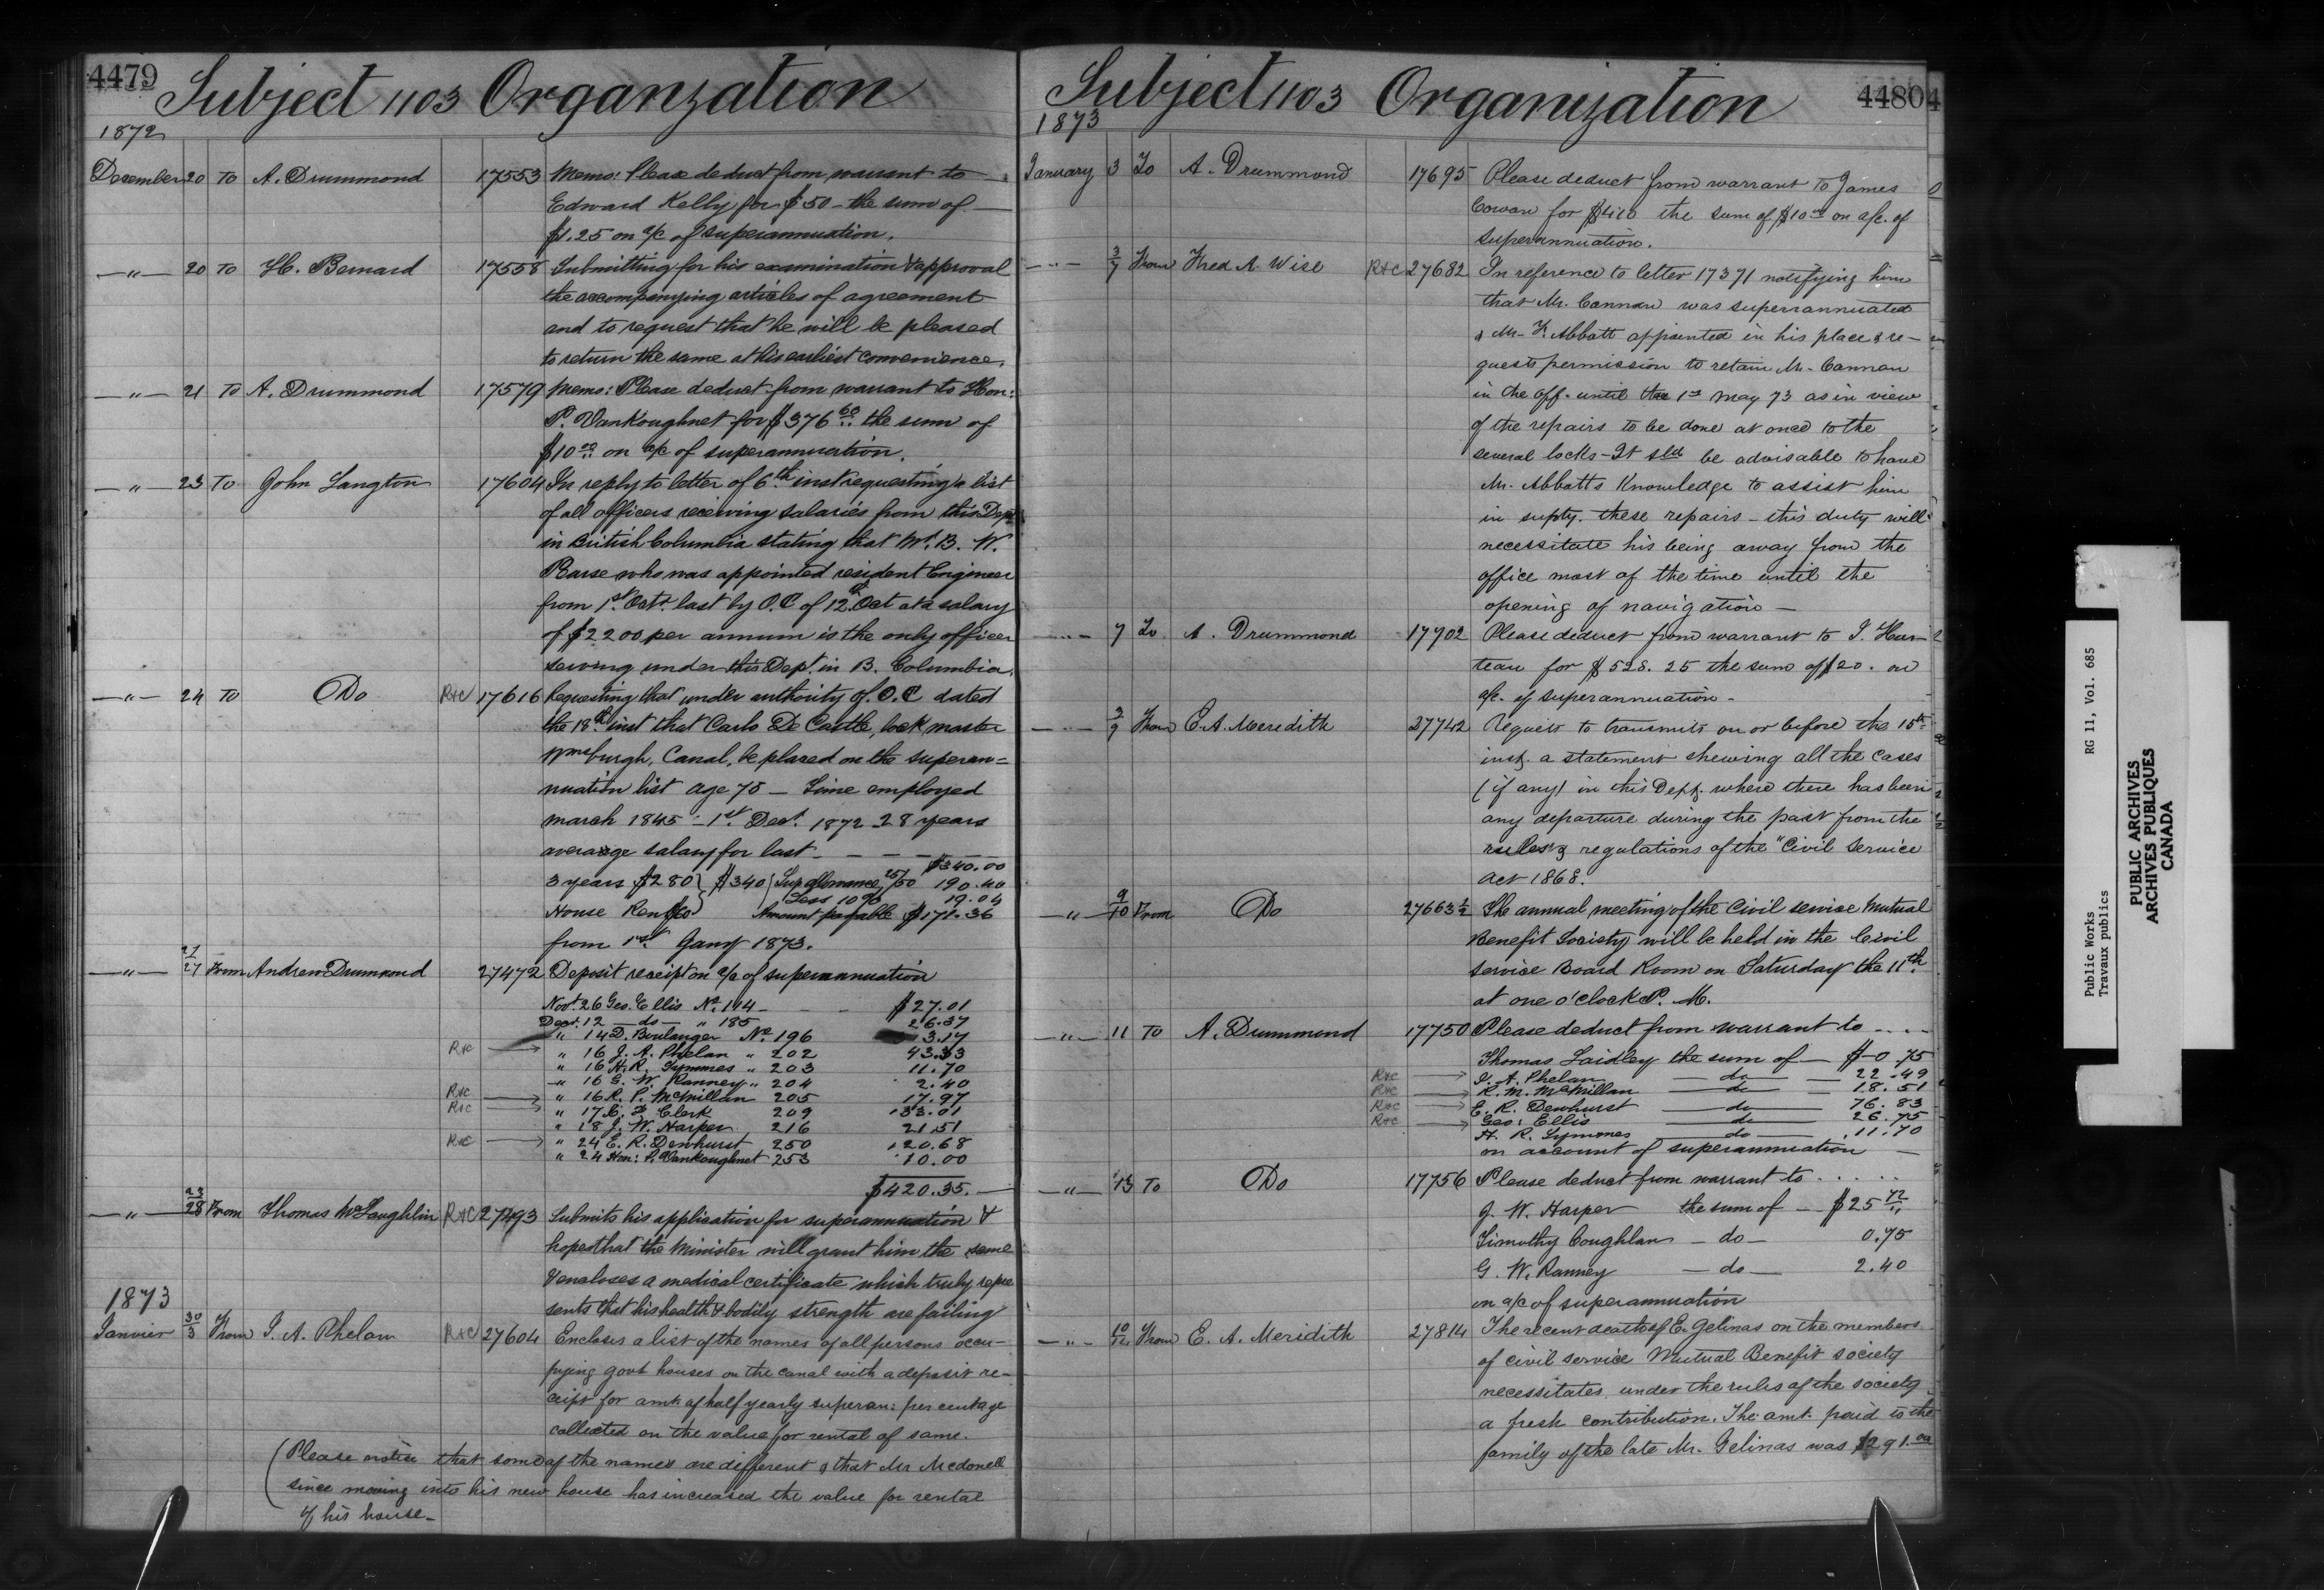 4479
Subject 1103 Organzation
1872
December 20 To A. Drummond 17553 Memo: Please deduct from warrant to
Edward Kelly for $50 - the sum of
$1.25 on a/c of superannuation.
—"— 20 To H. Bernard 17558 Submitting for his examination & approval
the accompanying articles of agreement
and to request that he will be pleased
to return the same at his earliest convenience.
—"— 21 To A. Drummond 17579 Memo: Please deduct from warrant to Hon:
P. Vankoughnet for $376.60 the sum of
$10.00 on a/c of superannuation.
—"— 23 To John Langton 17604 In reply to letter of 6th inst requesting a list
of all officers receiving salaries from this Dept
in British Columbia stating that Mr. B. W.
Pearse who was appointed resident Engineer
from 1st Octr. last by O.C of 12th Oct at a salary
of $2200 per annum is the only officer
serving under this Dept in B. Columbia.
—"— 24 To Do R&C 17616 Requesting that under authority of O.C dated
the 18th inst that Carlo De Castle, lock master
Wmsburgh, Canal, be placed on the superan=
nuation list age 75 — Time employed
march 1845 - 1st. Dect. 1872 28 years
average salary for last - — - — $340.00
3 years $280 } $340 { Sup allowance 25/50 190.40
Less 10% 19.04
House Rent $60 } Amount payable $171.36
from 1st. Jany 1873.
—"— 27/27 From Andrew Drummond 27472 Deposit receipt on a/c of superannuation
Novt. 26 Geo. Ellis No. 144 - - - $27.01
Dect. 12 — do — " 185 26.37
" 14 D. Boulanger No. 196 3.17
R&C " 16 J. A. Phelan " 202 43.33
" 16 H. R. Symmes " 203 11.70
" 16 G. W. Ranney " 204 2.40
R&C " 16 R. P. McMillan 205 17.97
R&C " 17 Clerk 209 133.01
" 18 J. W. Harper 216 21.51
R&C " 24 E. R. Dewhurst 250 120.68
" 24 Hon: P. Vankoughnet 253 10.00
$420.35. —
—"— 23/28 From Thomas McLaughlin R&C 27493 Submits his application for superannuation &
hopes that the Minister will grant him the same
& encloses a medical certificate which truly repre
sents that his health & bodily strength are failing
1873
Janvier 30/3 From J. A. Phelan R&C 27604 Encloses a list of the names of all persons occu-
pying govt houses on the canal with a deposit re-
ceipt for amt. of half yearly superan: percentage
collected on the value for rental of same.
(Please notice that some of the names are different & that Mr Mcdonell
since moving into his new house has increased the value for rental
of his house —
Subject 1103 Organization
4480
1873
January 3 To A. Drummond 17695 Please deduct from warrant to James
Cowan for $410 the sum of $10.00 on a/c. of
superannuation.
—"— 3/7 From Fred A. Wise R&C 27682 In reference to letter 17371 notifying him
that Mr. Cannan was superrannuated
& Mr. F. Abbott appointed in his place & re-
quests permission to retain Mr. Cannan
in the off. until the 1st May 73 as in view
of the repairs to be done at once to the
several locks - It sld be advisable to have
Mr. Abbatts Knowledge to assist him
in supty. these repairs - this duty will
necessitate his being away from the
office most of the time until the
opening of navigation —
—"— 7 To A. Drummond 17702 Please deduct from warrant to J. Hur-
teau for $528.25 the sum of $20. on
a/c. of superannuation -
—"— 2/9 From E. A. Meredith 27742 Requests to transmit on or before the 15th
inst. a statement shewing all the cases
(if any) in this Dept. where there has been
any departure during the past from the
rules & regulations of the "Civil Service
Act 1868.
—"— 9/10 From Do 27663½ The annual meeting of the Civil service Mutual
Benefit Society will be held in the Civil
service Board Room on Saturday the 11th
at one o'clock P. M.
—"— 11 To A. Drummond 17750 Please deduct from warrant to . . . .
Thomas Laidley the sum of — $-0.75
R&C J. A. Phelan — do — 22.49
R&C R. M. McMillan — do — 18.51
R&C E. R. Dewhurst — do — 76.83
R&C Geo: Ellis — do — 26.75
H. R. Symmes — do — 11.70
on account of superannuation —
—"— 13 To Do 17756 Please deduct from warrant to . . . . .
J. W. Harper the sum of — $25.72
Timothy Coughlan — do — 0.75
G. W. Ranney — do — 2.40
on a/c of superannuation
—"— 10/12 From E. A. Meridith 27814 The recent death of E. Gelinas on the members
of civil service Mutual Benefit society
necessitates, under the rules of the society
a fresh contribution. The amt. paid to the
family of the late Mr. Gelinas was $291.00
Public Works RG 11, Vol. 685
Travaux publics
PUBLIC ARCHIVES
ARCHIVES PUBLIQUES
CANADA